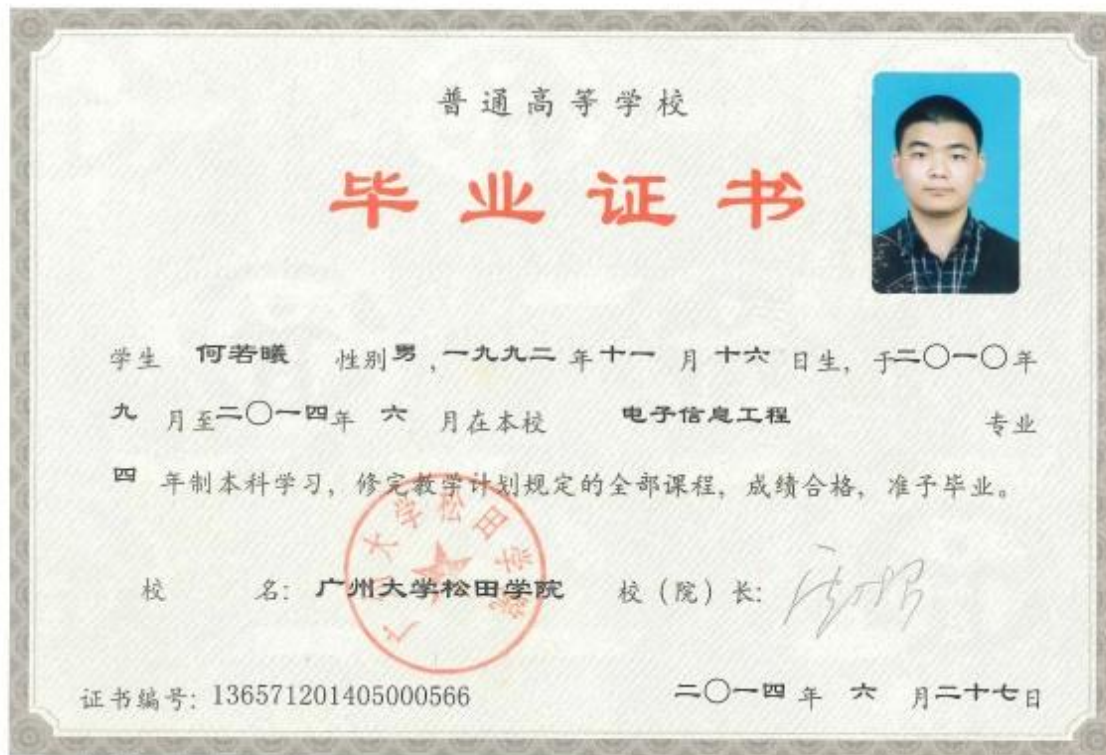 普通高等学校
毕业证书
学生 何若曦 性别男，一九九二年十一月十六日生，于二〇一〇年
九月至二〇一四年 六 月在本校 电子信息工程 专业
四 年制本科学习，修完教学计划规定的全部课程，成绩合格，准予毕业。
广州大学松田学院
校 名：广州大学松田学院 校（院）长：
证书编号：136571201405000566 二〇一四年 六 月二十七日